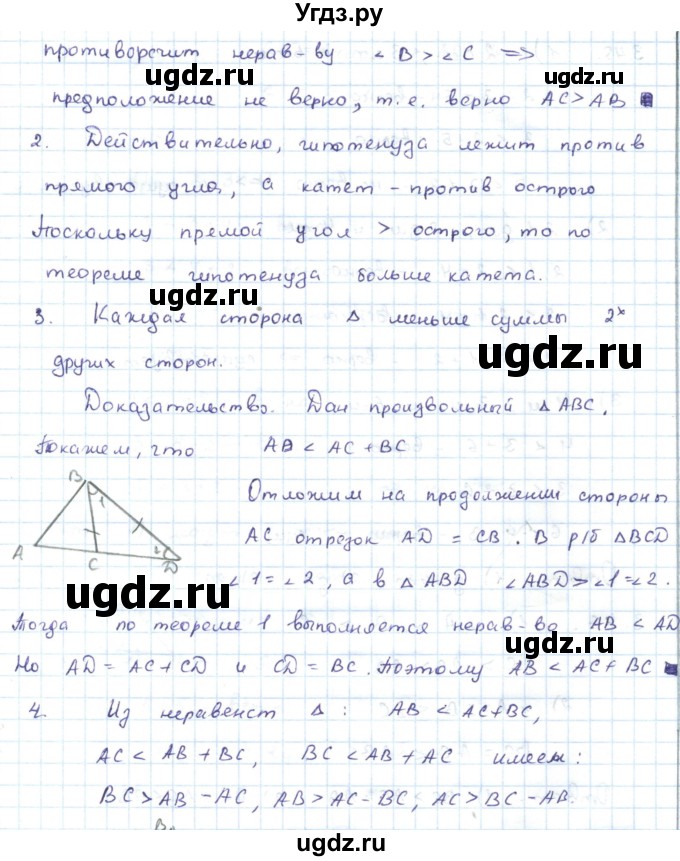 Угдз.ру
противоречит нерав-ву ∠B > ∠C =>
предположение не верно, т.е. верно AC > AB ■
2. Действительно, гипотенуза лежит против
прямого угла, а катет - против острого
Поскольку прямой угол > острого, то по
теореме гипотенуза больше катета.
3. Каждая сторона Δ меньше суммы 2ˣ
других сторон.
Доказательство. Дан произвольный Δ ABC.
Покажем, что AB < AC + BC
B 1 A C 2 D
Отложим на продолжении стороны
AC отрезок AD = CB. В р/б ΔBCD
∠1 = ∠2, а в Δ ABD ∠ABD > ∠1 = ∠2.
Тогда по теореме 1 выполняется нерав-во AB < AD
Но AD = AC + CD и CD = BC. Поэтому AB < AC + BC ■
4. Из неравенст Δ: AB < AC + BC,
AC < AB + BC, BC < AB + AC имеем:
BC > AB - AC, AB > AC - BC, AC > BC - AB.
ugdz.ru
ugdz.ru
ugdz.ru
ugdz.ru
ugdz.ru
ugdz.ru
ugdz.ru
ugdz.ru
ugdz.ru
ugdz.ru